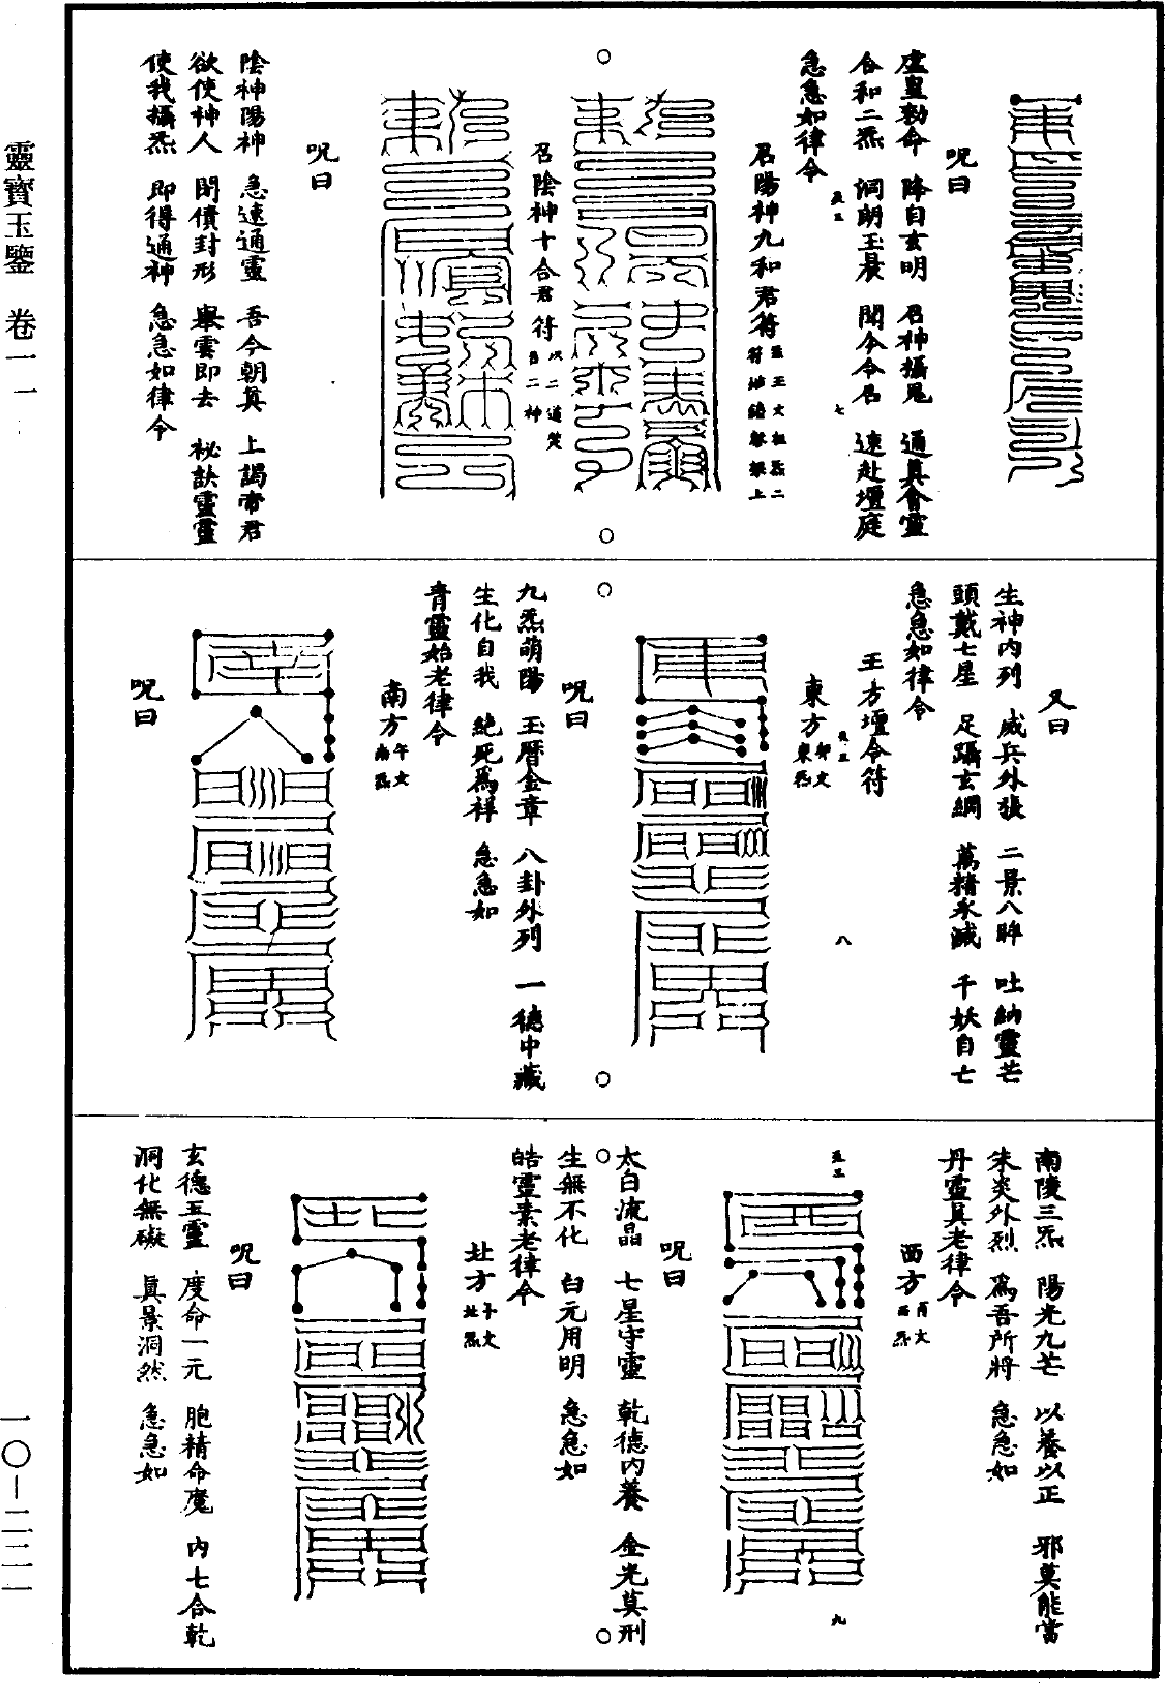 咒曰
虛皇勑命　降自玄明　召神攝鬼　通真會靈
合和二炁　洞朗玉晨　聞今令召　速赴壇庭
急急如律令
召陽神九和君符
召陰神十合君符　以二道焚召二神
咒曰
陰神陽神　急速通靈　吾今朝真　上謁帝君
欲使神人　開債封形　舉雲即去　祕訣靈靈
使我攝炁　即得通神　急急如律令
又曰
生神內列　威兵外張　二景八眸　吐納靈芒
頭戴七星　足躡玄綱　萬精永滅　千妖自亡
急急如律令
五方壇令符
東方　卯文東炁
咒曰
九炁萌陽　玉曆金章　八卦外列　一德中藏
生化自我　絕死為祥　急急如
青靈始老律令
南方　午文南炁
咒曰
南陵三炁　陽光九芒　以養以正　邪莫能當
朱炎外烈　為吾所將　急急如
丹靈真老律令
西方　酉文西炁
咒曰
太白流晶　七星守靈　乾德內養　金光莫刑
生無不化　白元用明　急急如
皓靈素老律令
北方　子文北炁
咒曰
玄德五靈　度命一元　胞精命魔　內七合乾
洞化無礙　真景洞然　急急如
七
八
九
靈寶玉鑒　卷一一
一〇—二二一